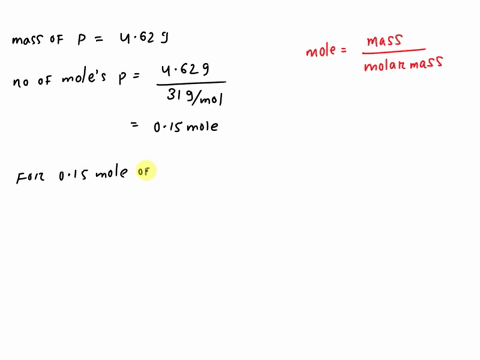 mass of P = 4.62 g
mole = mass / molar mass
no of mole's P = 4.62 g / 31 g/mol
= 0.15 mole
For 0.15 mole of